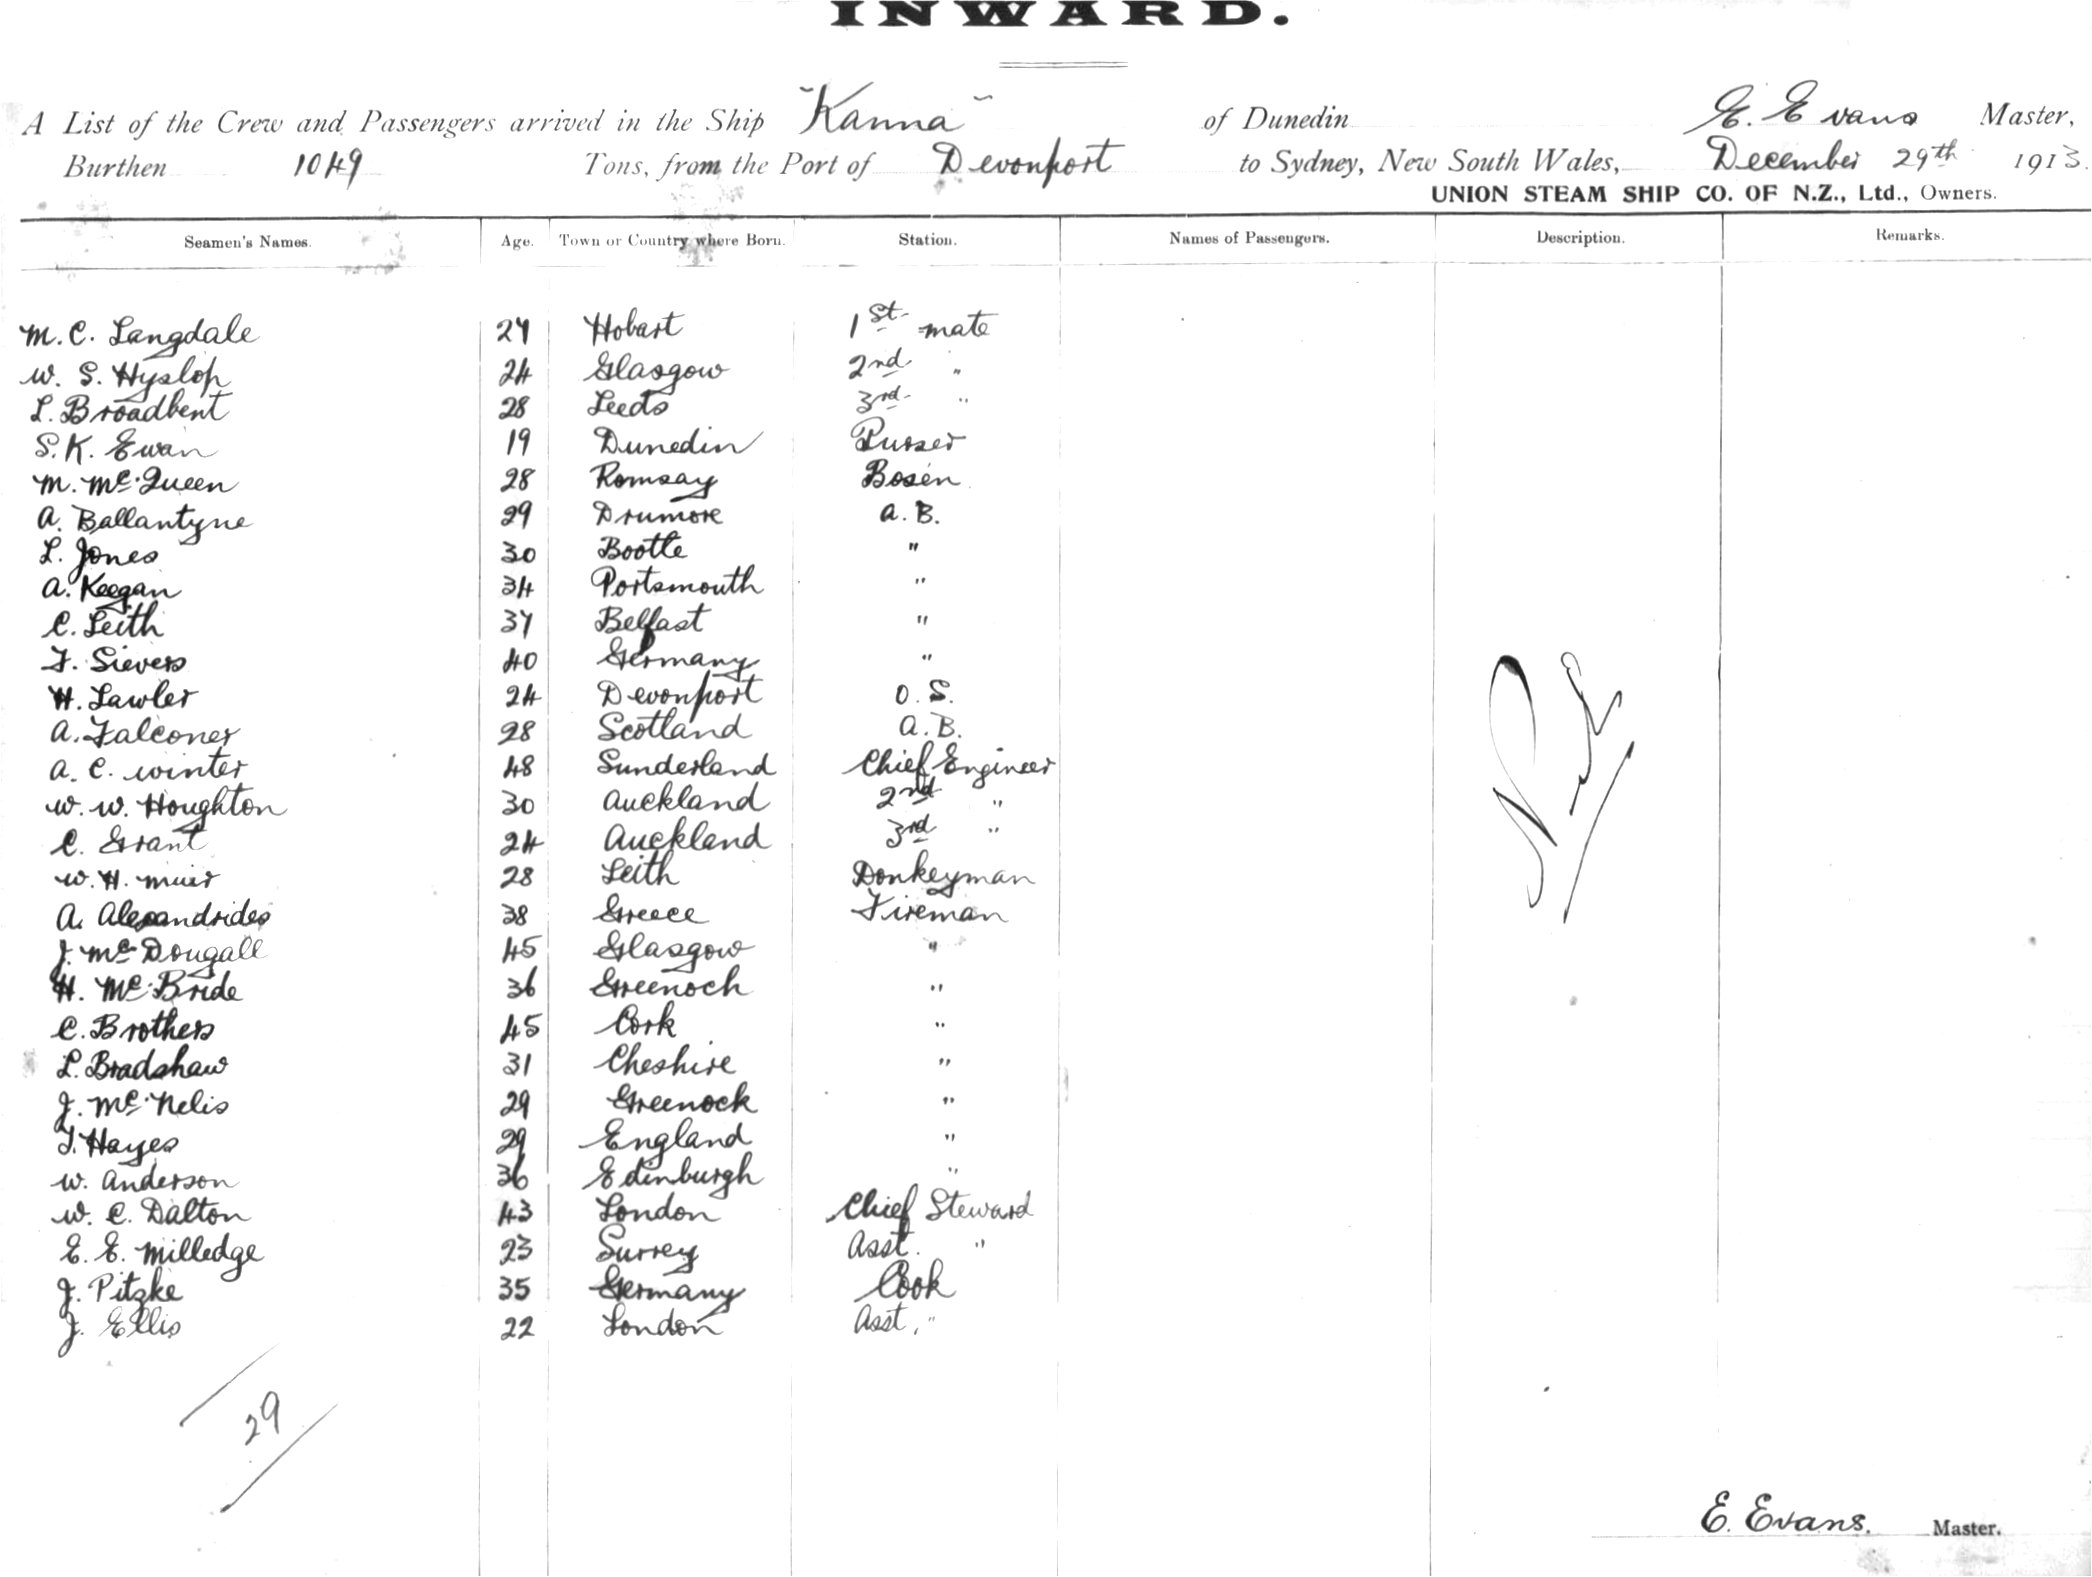 INWARD.
A List of the Crew and Passengers arrived in the Ship "Kanna" of Dunedin E. Evans Master,
Burthen 1049 Tons, from the Port of Devonport to Sydney, New South Wales, December 29th 1913.
UNION STEAM SHIP CO. OF N.Z., Ltd., Owners.
Seamen's Names. Age. Town or Country where Born. Station. Names of Passengers. Description. Remarks.
M. C. Langdale 27 Hobart 1st mate
W. S. Hyslop 24 Glasgow 2nd "
L. Broadbent 28 Leeds 3rd "
S. K. Ewan 19 Dunedin Purser
M. Mc Queen 28 Romsay Bosen
A. Ballantyne 29 Drumore A. B.
L. Jones 30 Bootle "
A. Keegan 34 Portsmouth "
C. Leith 37 Belfast "
F. Sievers 40 Germany "
H. Lawler 24 Devonport O. S.
A. Falconer 28 Scotland A. B.
A. C. Winter 48 Sunderland Chief Engineer
W. W. Houghton 30 Auckland 2nd "
C. Grant 24 Auckland 3rd "
W. H. Muir 28 Leith Donkeyman
A. Alexandrides 38 Greece Fireman
J. Mc Dougall 45 Glasgow "
H. Mc Bride 36 Greenock "
C. Brothers 45 Cork "
L. Bradshaw 31 Cheshire "
J. Mc Nelis 29 Greenock "
T. Hayes 29 England "
W. Anderson 36 Edinburgh "
W. C. Dalton 43 London Chief Steward
E. E. Milledge 23 Surrey Asst. "
J. Pitzke 35 Germany Cook
J. Ellis 22 London Asst. "
29
E. Evans. Master.